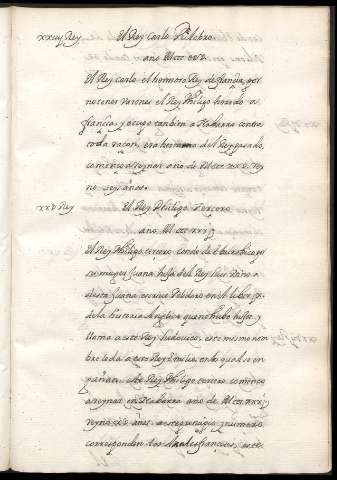 xxiiij Rey El Rey Carlo
año M ccc xxj.
El Rey Carlo el hermoso Rey de francia, por
no tener Varones el Rey Philipo heredo a
francia, y ocupo tambien a Nabarra contra
toda razon, era hermano del Rey pasado,
començo a reynar año de M ccc xxj. Rey
no seys años.
xxv Rey El Rey Philipo Tercero
año M ccc xxvij
El Rey Philipo tercero conde de por
su muger Juana hija del Rey Luis
desta Juana escrive Polidoro en el libro
de la historia Anglica que no hubo hijos y
llama a este Rey Ludovico, este mesmo nom
bre le da a este Rey Emilio, en lo qual se en
gañan. este Rey Philipo tercero começo
a reynar en Nabarra año de M ccc xxvij
reyno años. a este principio y numero
corresponden los Anales franceses, este